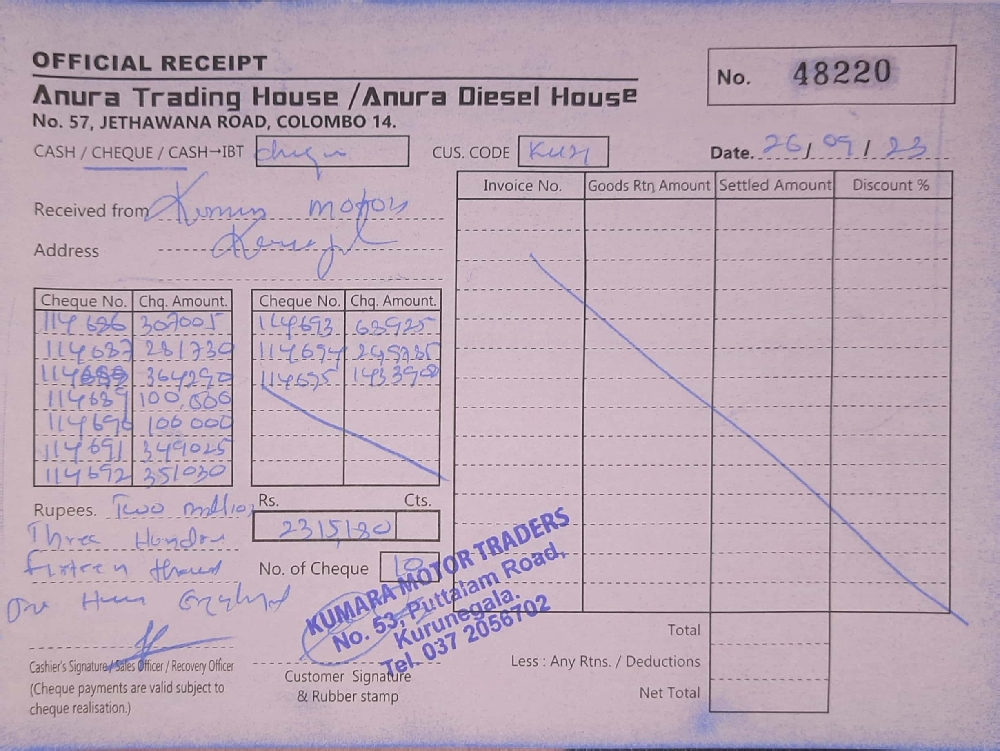 OFFICIAL RECEIPT
No. 48220
Anura Trading House / Anura Diesel House
No. 57, JETHAWANA ROAD, COLOMBO 14.
CASH / CHEQUE / CASH→IBT
CUS. CODE
Date. 26 / 09 / 23
Received from motors
Address
Invoice No. Goods Rtn Amount Settled Amount Discount %
Cheque No. Chq. Amount. Cheque No. Chq. Amount.
114686 307005 114693 68925
114687 281730 114694
364290 114695
114689 100,000
114690 100 000
114691 349025
114692 351030
Rupees. Two million
Rs. Cts.
Three
No. of Cheque 10
KUMARA MOTOR TRADERS
No. 53, Puttalam Road,
Kurunegala.
Tel. 037 2056702
Cashier's Signature / Sales Officer / Recovery Officer
(Cheque payments are valid subject to
cheque realisation.)
Customer Signature
& Rubber stamp
Total
Less : Any Rtns. / Deductions
Net Total